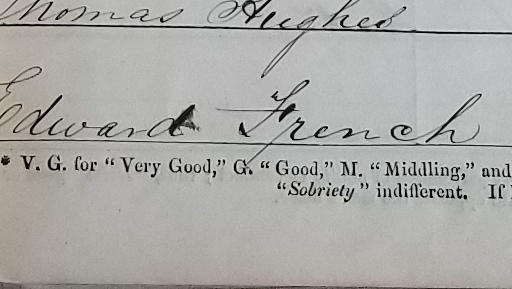 Thomas Hughes
Edward French
* V. G. for "Very Good," G. "Good," M. "Middling," and
"Sobriety" indifferent. If